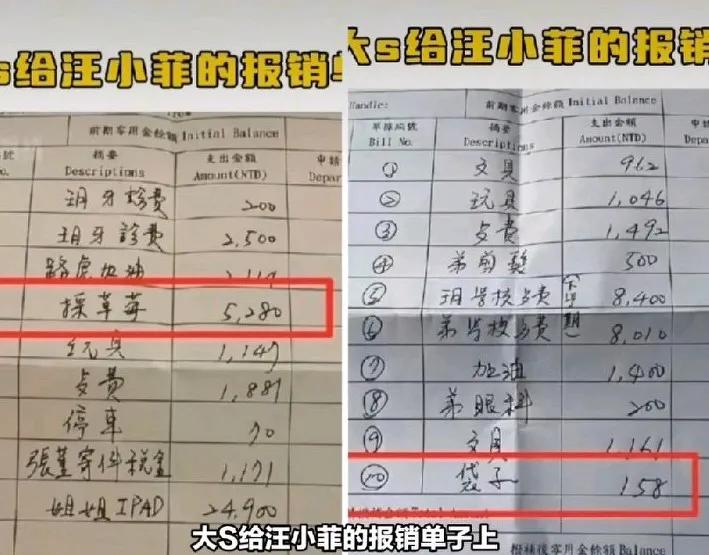 s给汪小菲的报销单
前期零用金餘額 Initial Balance
No.
摘要
Descriptions
支出金額
Amount(NTD)
申請
Depar
玥牙診費 200
玥牙診費 2,500
路虎加油
採草莓 5,280
玩具 1,147
餐費
停車 70
張董寄件稅金 1,171
姐姐IPAD 24,900
大s给汪小菲的报销
Handle:
前期零用金餘額 Initial Balance
單據編號
Bill No.
摘要
Descriptions
支出金額
Amount(NTD)
申
Dep
① 文具 962
② 玩具 1,046
③ 餐費 1,492
④ 弟剪髮 500
⑤ 玥學校餐費 8,400
⑥ 弟學校餐費 8,010
(下學期)
⑦ 加油 1,400
⑧ 弟眼科 200
⑨ 文具 1,161
⑩ 袋子 158
撥補後零用金餘額 Balance
大S给汪小菲的报销单子上